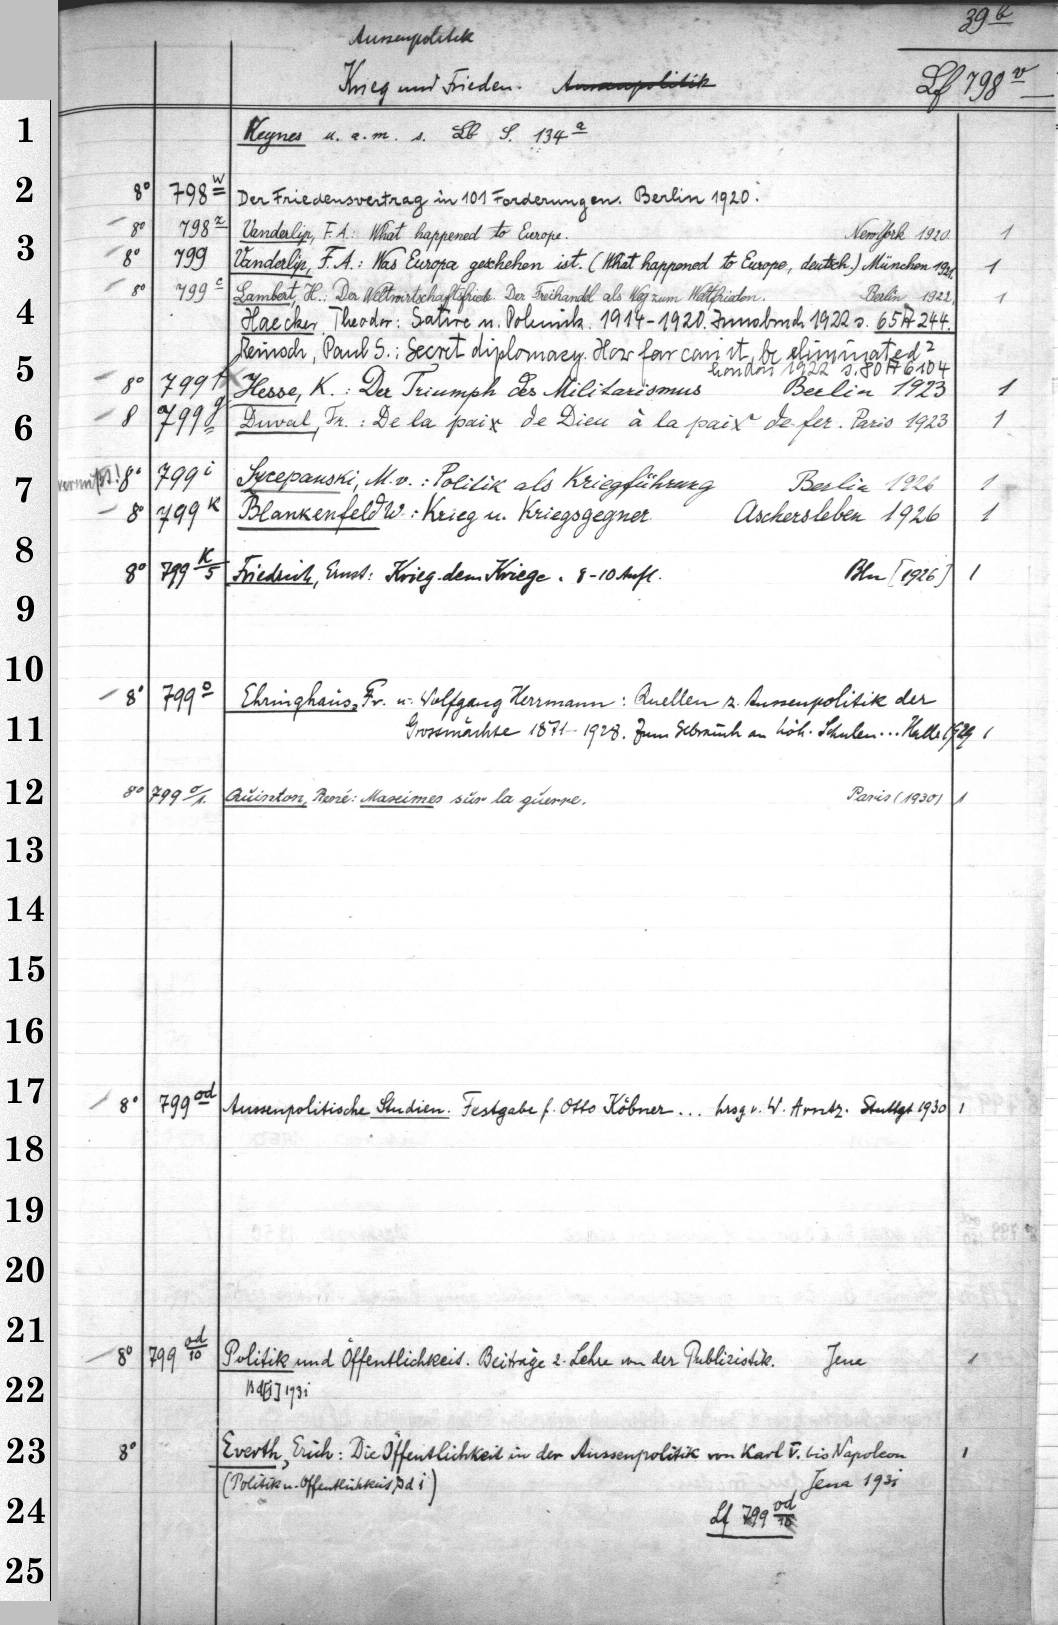 39 b
Aussenpolitik
Krieg und Frieden. Aussenpolitik Lf 798 v
1 Keynes u. a. m. s. Lb S. 134 a
2 8° 798 w Der Friedensvertrag in 101 Forderungen. Berlin 1920.
8° 798 z Vanderlip, F. A.: What happened to Europe. New York 1920. 1
3 8° 799 Vanderlip, F. A.: Was Europa geschehen ist. (What happened to Europe, deutsch.) München 1921. 1
8° 799 c Lambert, H.: Der Weltwirtschaftsfriede. Der Freihandel als Weg zum Weltfrieden. Berlin 1922. 1
4 Haecker, Theodor: Satire u. Polemik. 1914-1920. Innsbruck 1922 s. 65 A 244.
Reinsch, Paul S.: Secret diplomacy. How far can it be eliminated?
London 1922 s. 80 A 6104
5 8° 799 f Hesse, K.: Der Triumph des Militarismus Berlin 1923 1
6 8 799 g Duval, Fr.: De la paix de Dieu à la paix de fer. Paris 1923 1
7 vermißt! 8° 799 i Szcepanski, M. v.: Politik als Kriegführung Berlin 1926 1
8° 799 K Blankenfeld W: Krieg u. Kriegsgegner Aschersleben 1926 1
8
8° 799 K/5 Friedrich, Ernst: Krieg dem Kriege. 8-10 Aufl. Bln [1926] 1
9
10
8° 799 o Ehringhaus, Fr. u. Wolfgang Herrmann: Quellen z. Aussenpolitik der
11 Grossmächte 1871-1928. Zum Gebrauch an höh. Schulen... Halle 1929 1
12 8° 799 o/1. Quinton, René: Maximes sur la guerre. Paris (1930) 1
13
14
15
16
17 8° 799 od Aussenpolitische Studien. Festgabe f. Otto Köbner... hrsg v. W. Arntz. Stuttgt 1930 1
18
19
20
21
8° 799 od/10 Politik und Öffentlichkeit. Beiträge z. Lehre von der Publizistik. Jena 1
22 Bd [1] 1931
23 8° Everth, Erich: Die Öffentlichkeit in der Aussenpolitik von Karl V. bis Napoleon 1
(Politik u. Öffentlichkeit, Bd 1) Jena 1931
24 Lf 799 od/10
25